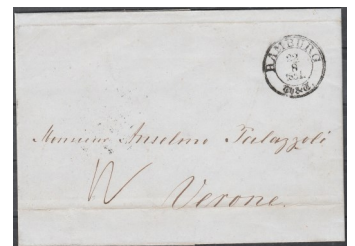 HAMBURG
22
8
Monsieur Anselmo Palazzoli
Verone.